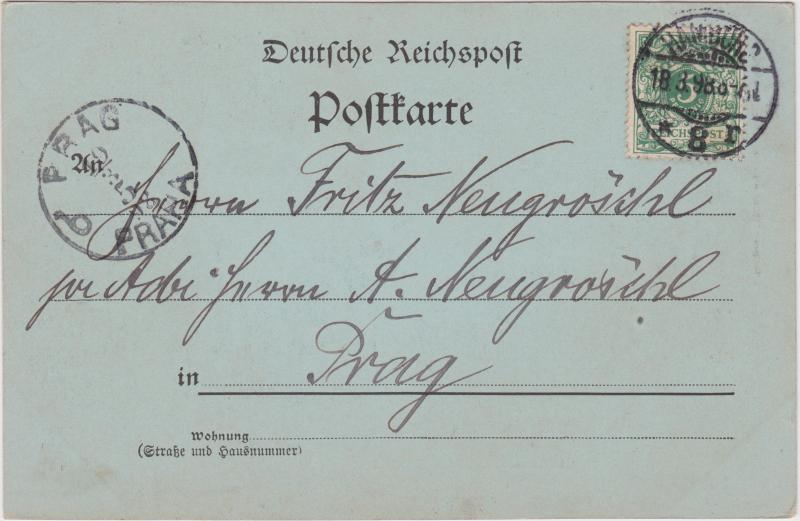 Deutsche Reichspost
Postkarte
HAMBURG
18.3.98.8-9N.
* 8 r
5
REICHSPOST
PRAG
PRAHA
An
Herrn Fritz Neugröschl
pr Adr. Herrn A. Neugröschl
in Prag
Wohnung
(Straße und Hausnummer)